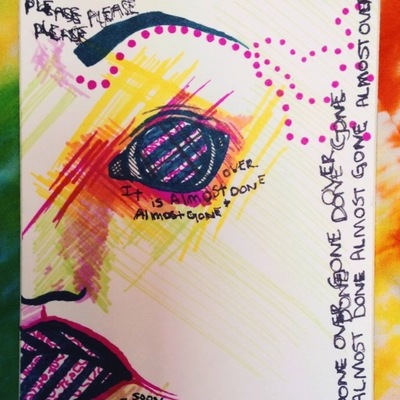 PLEASE PLEASE
PLEASE
OVER.
IT IS ALMOST DONE
ALMOST GONE +
DONE OVER GONE OVER
DONE DONE GONE
ALMOST DONE ALMOST GONE ALMOST OVER
SOON